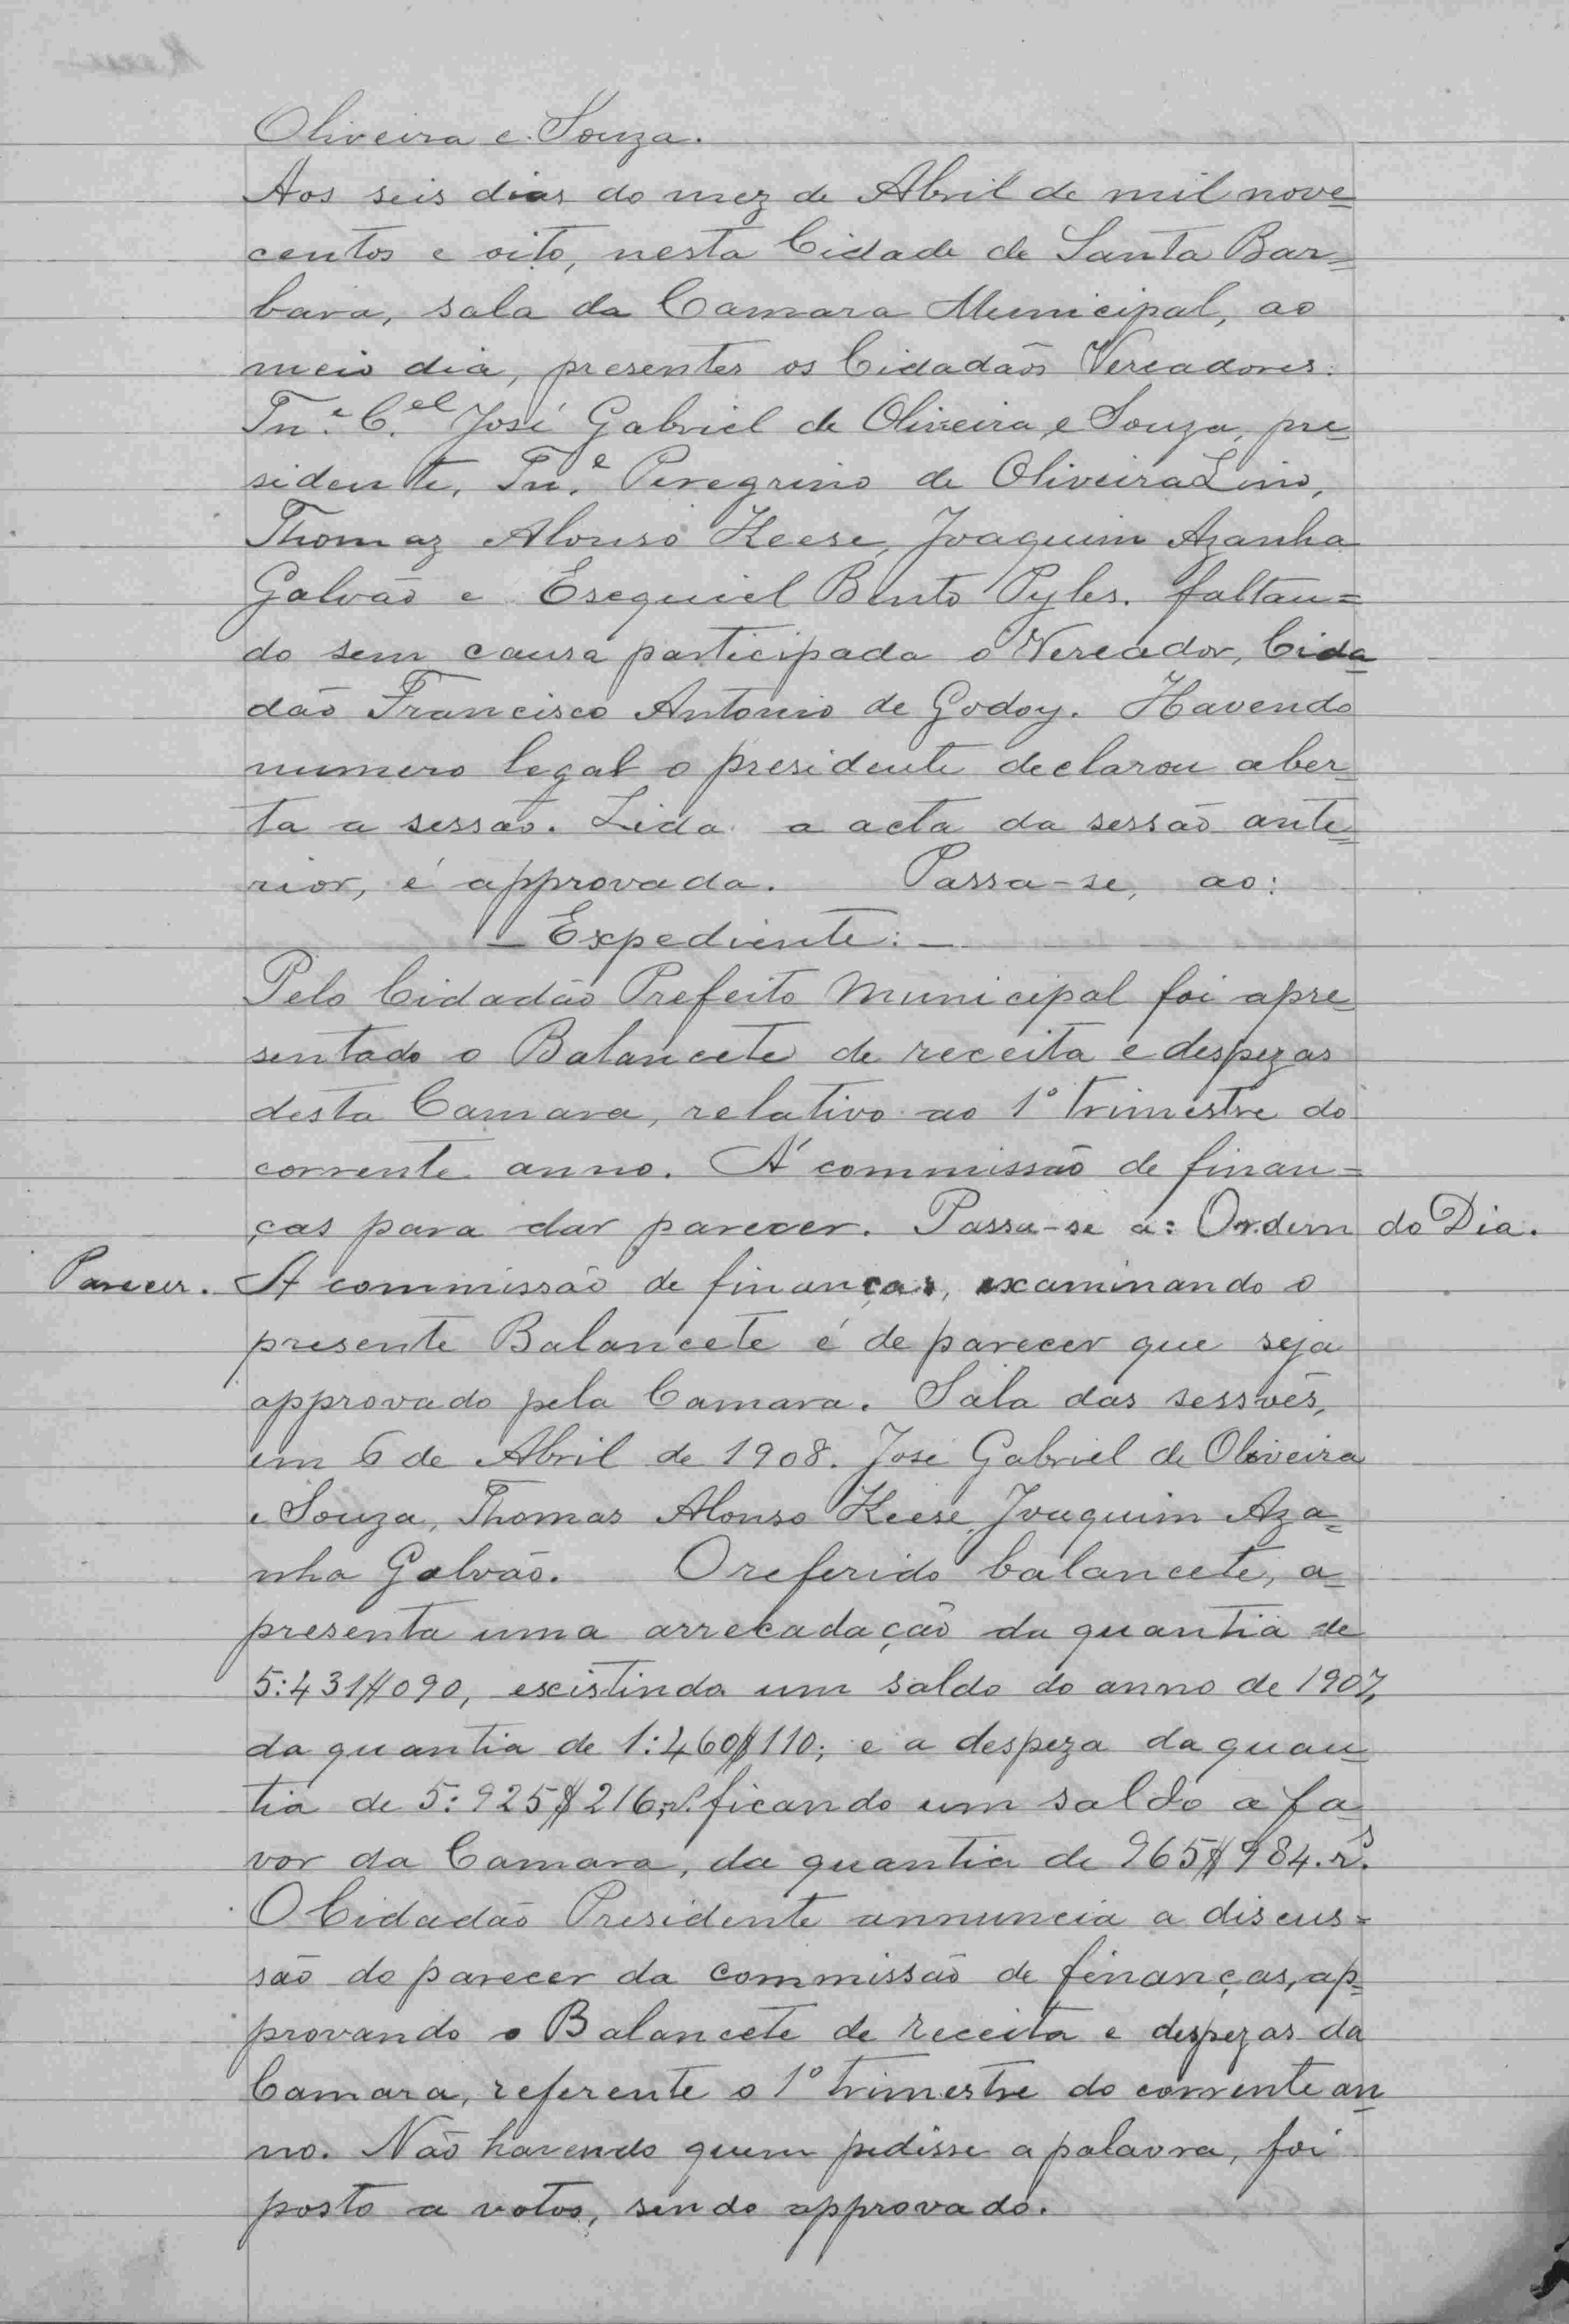 Oliveira e Souza.
Aos seis dias do mez de Abril de mil nove=
centos e oito, nesta Cidade de Santa Bar=
bara, sala da Camara Municipal, ao
meio dia, presentes os Cidadãos Vereadores:
Tn.e C.el José Gabriel de Oliveira e Souza, pre=
sidente, Tn.e Peregrino de Oliveira Lino,
Thomaz Alonso Keese, Joaquim Azanha
Galvão e Esequiel Bento Pyles. faltan=
do sem causa participada o Vereador, Cida=
dão Francisco Antonio de Godoy. Havendo
numero legal o presidente declarou aber=
ta a sessão. Lida a acta da sessão ante=
rior, é approvada. Passa-se, ao:
— Expediente: —
Pelo Cidadão Prefeito Municipal foi apre=
sentado o Balancete de receita e despezas
desta Camara, relativo ao 1º trimestre do
corrente anno. Á commissão de finan=
ças para dar parecer. Passa-se á: Ordem do Dia.
Parecer. A commissão de finanças, examinando o
presente Balancete é de parecer que seja
approvado pela Camara. Sala das sessões,
em 6 de Abril de 1908. José Gabriel de Oliveira
e Souza, Thomas Alonso Keese, Joaquim Aza=
nha Galvão. O referido balancete, a=
presenta uma arrecadação da quantia de
5:431$090, escistindo um saldo do anno de 1907,
da quantia de 1:460$110; e a despeza da quan=
tia de 5:925$216, rs. ficando um saldo a fa=
vor da Camara, da quantia de 965$984. rs.
O Cidadão Presidente annuncia a discus=
são do parecer da commissão de finanças, ap=
provando o Balancete de receita e despezas da
Camara, referente o 1º trimestre do corrente an=
no. Não havendo quem pedisse a palavra, foi
posto a votos, sendo approvado.